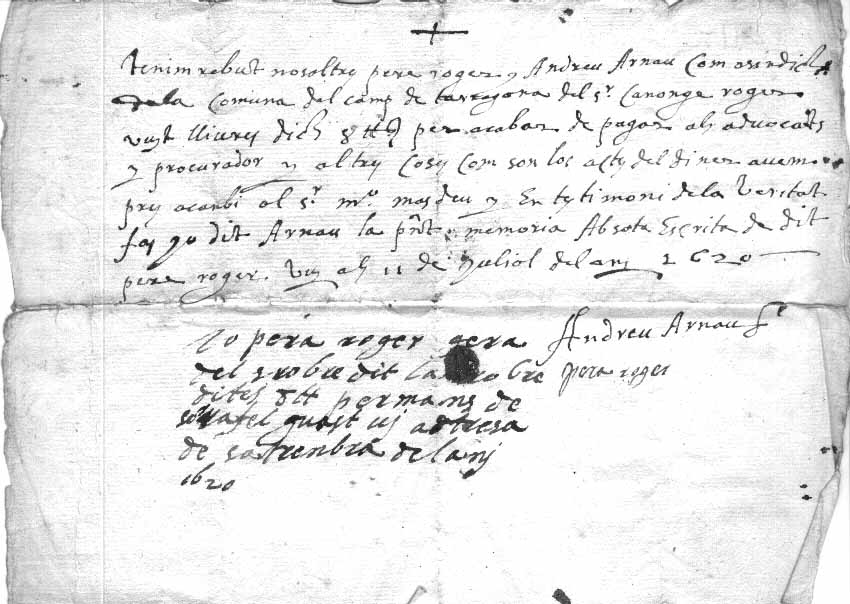 tenim rebut nosaltrs pere roger y Andreu Arnau Com asindichs
de la Comuna del camp de tarragona del sr. Canonge roger
vuyt lliures dich 8 ll per acabar de pagar als advocats
y procurador y altres Coses Com son los actes del diner avem
pres acanbi al sr. mo. masdeu y En testimoni de la Veritat
fas yo dit Arnau la pnt memoria Absota Escrita de dit
pere roger. vuy als 11 de Juliol del any 1620
Andreu Arnau
pera roger
Yo pera roger
del sobre dit la sobre
dites 8 ll per mans de
rafel guasc uj a tresa
de satrenbra de lanj
1620